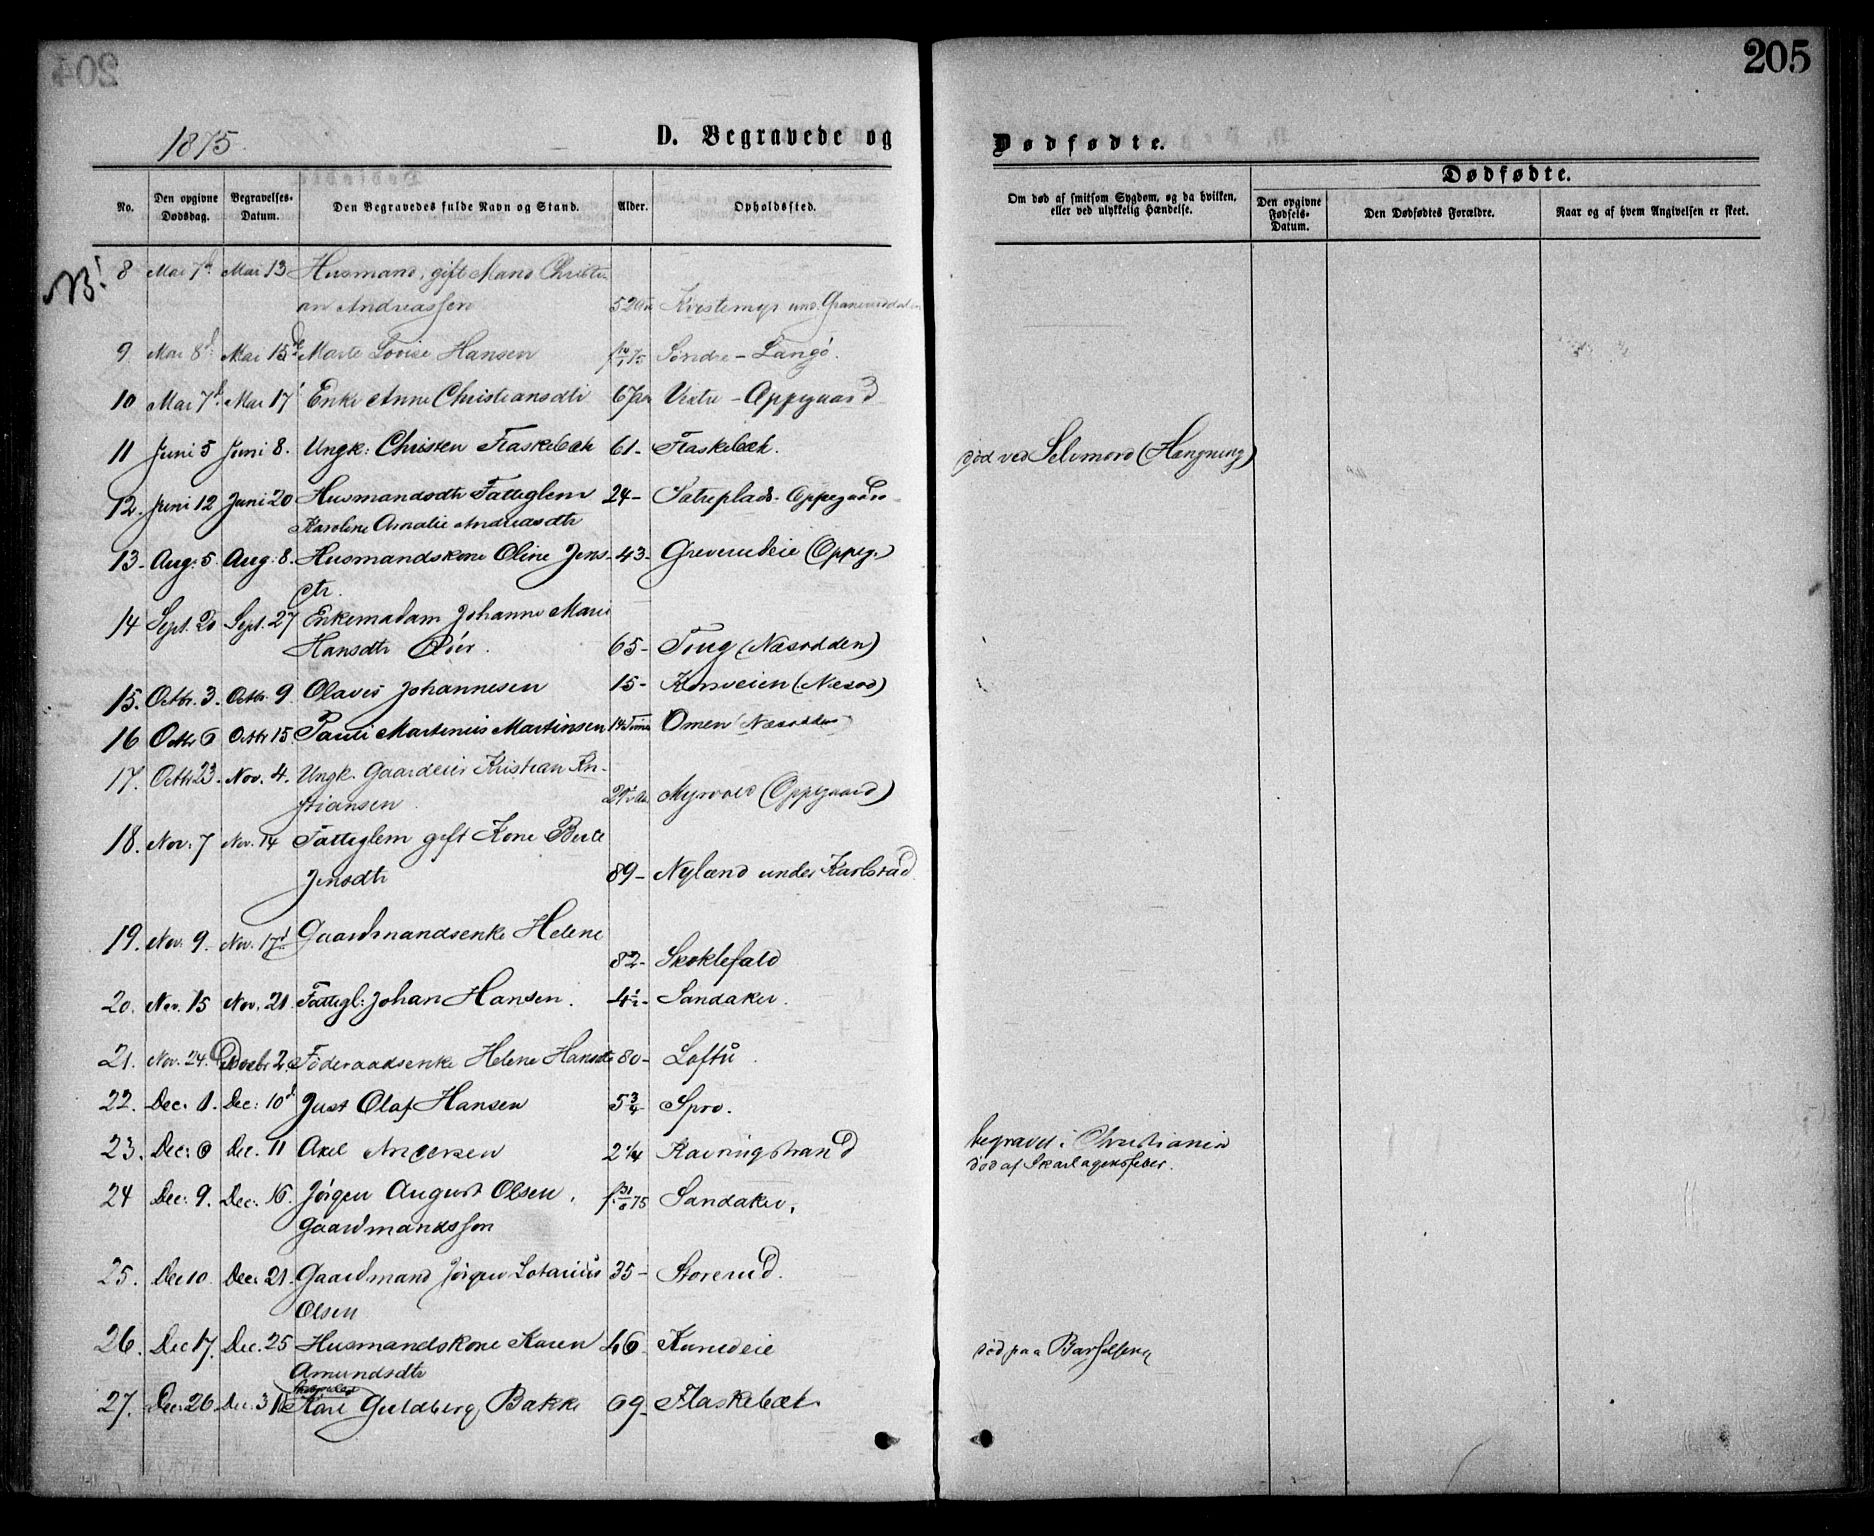 205
1875.
D. Begravede og Dødfødte.
Dødfødte.
No. Den opgivne Dødsdag. Begravelses-Datum. Den Begravedes fulde Navn og Stand. Alder. Opholdssted. Om død af smitsom Sygdom, og da hvilken, eller ved ulykkelig Hændelse. Den opgivne Fødsels-Datum. Den Dødfødtes Forældre. Naar og af hvem Angivelsen er skeet.
NB!
8 Mai 7d Mai 13 Husmand, gift Mand Christi
an Andreassen 52 Aar
9. Mai 8d. Mai 15de Marte Lovise Hansen Søndre-Langø.
10 Mai 7d. Mai 17d Enke Anne Christiansdtr 67 Aar Vestre-Oppegaard
11 Juni 5 Juni 8. Ungk: Christen Flaskebæk 61- Flaskebæk. død ved Selvmord (Hængning)
12. Juni 12 Juni 20 Husmandsdtr Fattiglem 24- Sætreplads-
Karoline Amalie Andreasdtr
13- Aug: 5. Aug: 8. Husmandskone Oline Jens- 43- Greverudeie (Oppeg.)
dtr.
14 Sept. 20 Sept. 27 Enkemadam Johanne Marie
Hansdtr 65- (Næsodden)
15. Octbr. 3. Octbr. 9. Olaves Johannesen 15- (Næsod)
16 Octbr 6 Octbr 15. Martinius Martinsen 14 Omen (Næsodden)
17. Octbr 23. Nov. 4. Ungk. Gaardeier Kristian Kri-
stiansen. Myrvold (Oppegaard)
18. Nov. 7 Nov. 14 Fattiglem gift Kone Berte
Jensdtr 89- Nyland under Karlsrud
19. Nov. 9. Nov. 17d Gaardmandsenke Helene
82- Skoklefald
20. Nov. 15 Nov. 21. Fattigl: Johan Hansen. 4½- Sandaker.
21. Nov. 24. Decbr 2. Føderaadsenke Helene Hansdtr 80- Loftu.
22. Dec. 1. Dec: 10d Just Olaf Hansen 5¾ Spro.
23. Dec: 6 Dec. 11 Axel Andersen 2¼ Ravningstrand begravet i Christiania
død af Skarlagensfeber.
24 Dec: 9. Dec. 16. Jörgen August Olsen, Sandaker.
Gaardmandssøn
25. Dec 10. Dec. 21. Gaardmand Jörgen Lotarius 35- Storerud.
Olsen
26. Dec 17. Dec. 25 Husmandskone Karen 46 død paa Barselseng
Amundsdtr
27. Dec: 26. Dec. 31 Guldberg Bakke 69- Flaskebæk